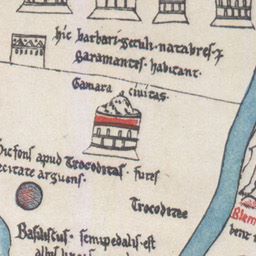 hic barbari Getuli natabres ⁊
Garamantes habitant.
Gamara civitas.
hic fons apud Trocoditas fures
arguens.
Trocoditee
Basiliscus semipedalis est
albis